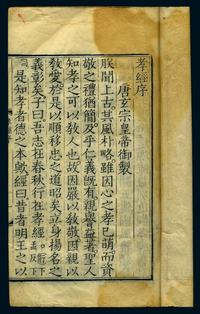 孝經序
唐玄宗皇帝御製
朕聞上古其風朴略雖因心之孝已萌而資
敬之禮猶簡及乎仁義既有親譽益著聖人
知孝之可以教人也故因嚴以教敬因親以
教愛於是以順移忠之道昭矣立身揚名之
義彰矣子曰吾志在春秋行在孝經
是知孝者德之本歟經曰昔者明王之以